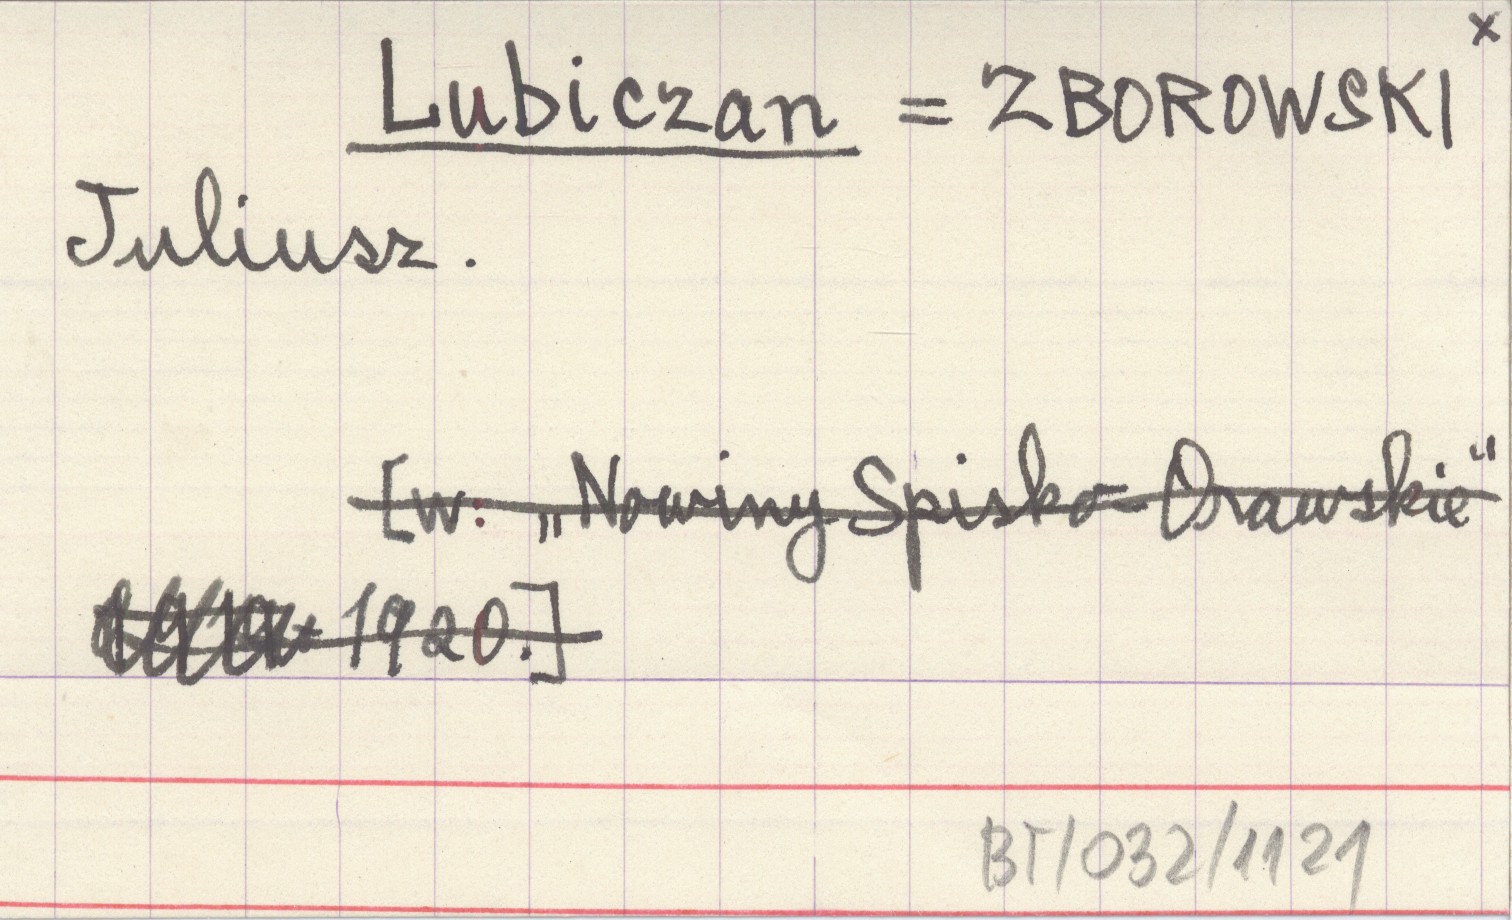 x
Lubiczan = ZBOROWSKI
Juliusz.
[w: „Nowiny Spisko-Orawskie"
1920.]
BT/032/1121